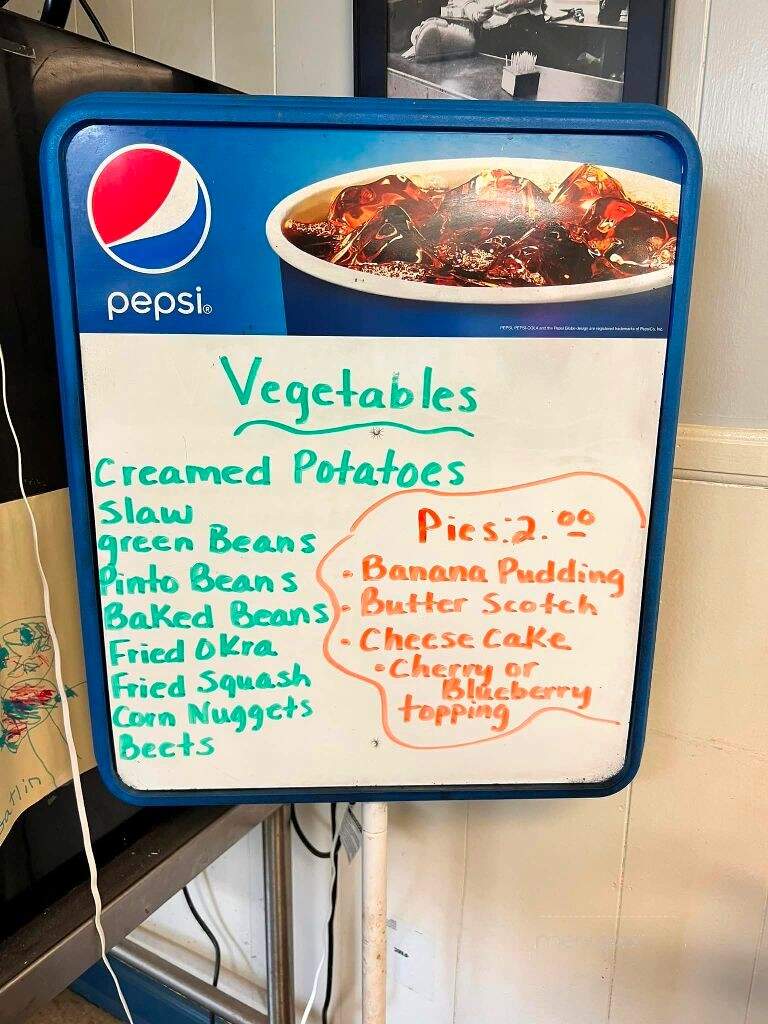 pepsi®
PEPSI, PEPSI-COLA and the Pepsi Globe design are registered trademarks of PepsiCo, Inc.
Vegetables
Creamed Potatoes
Slaw
green Beans
Pinto Beans
Baked Beans
Fried Okra
Fried Squash
Corn Nuggets
Beets
Pies: 2.00
• Banana Pudding
• Butter Scotch
• Cheese Cake
• Cherry or
Blueberry
topping